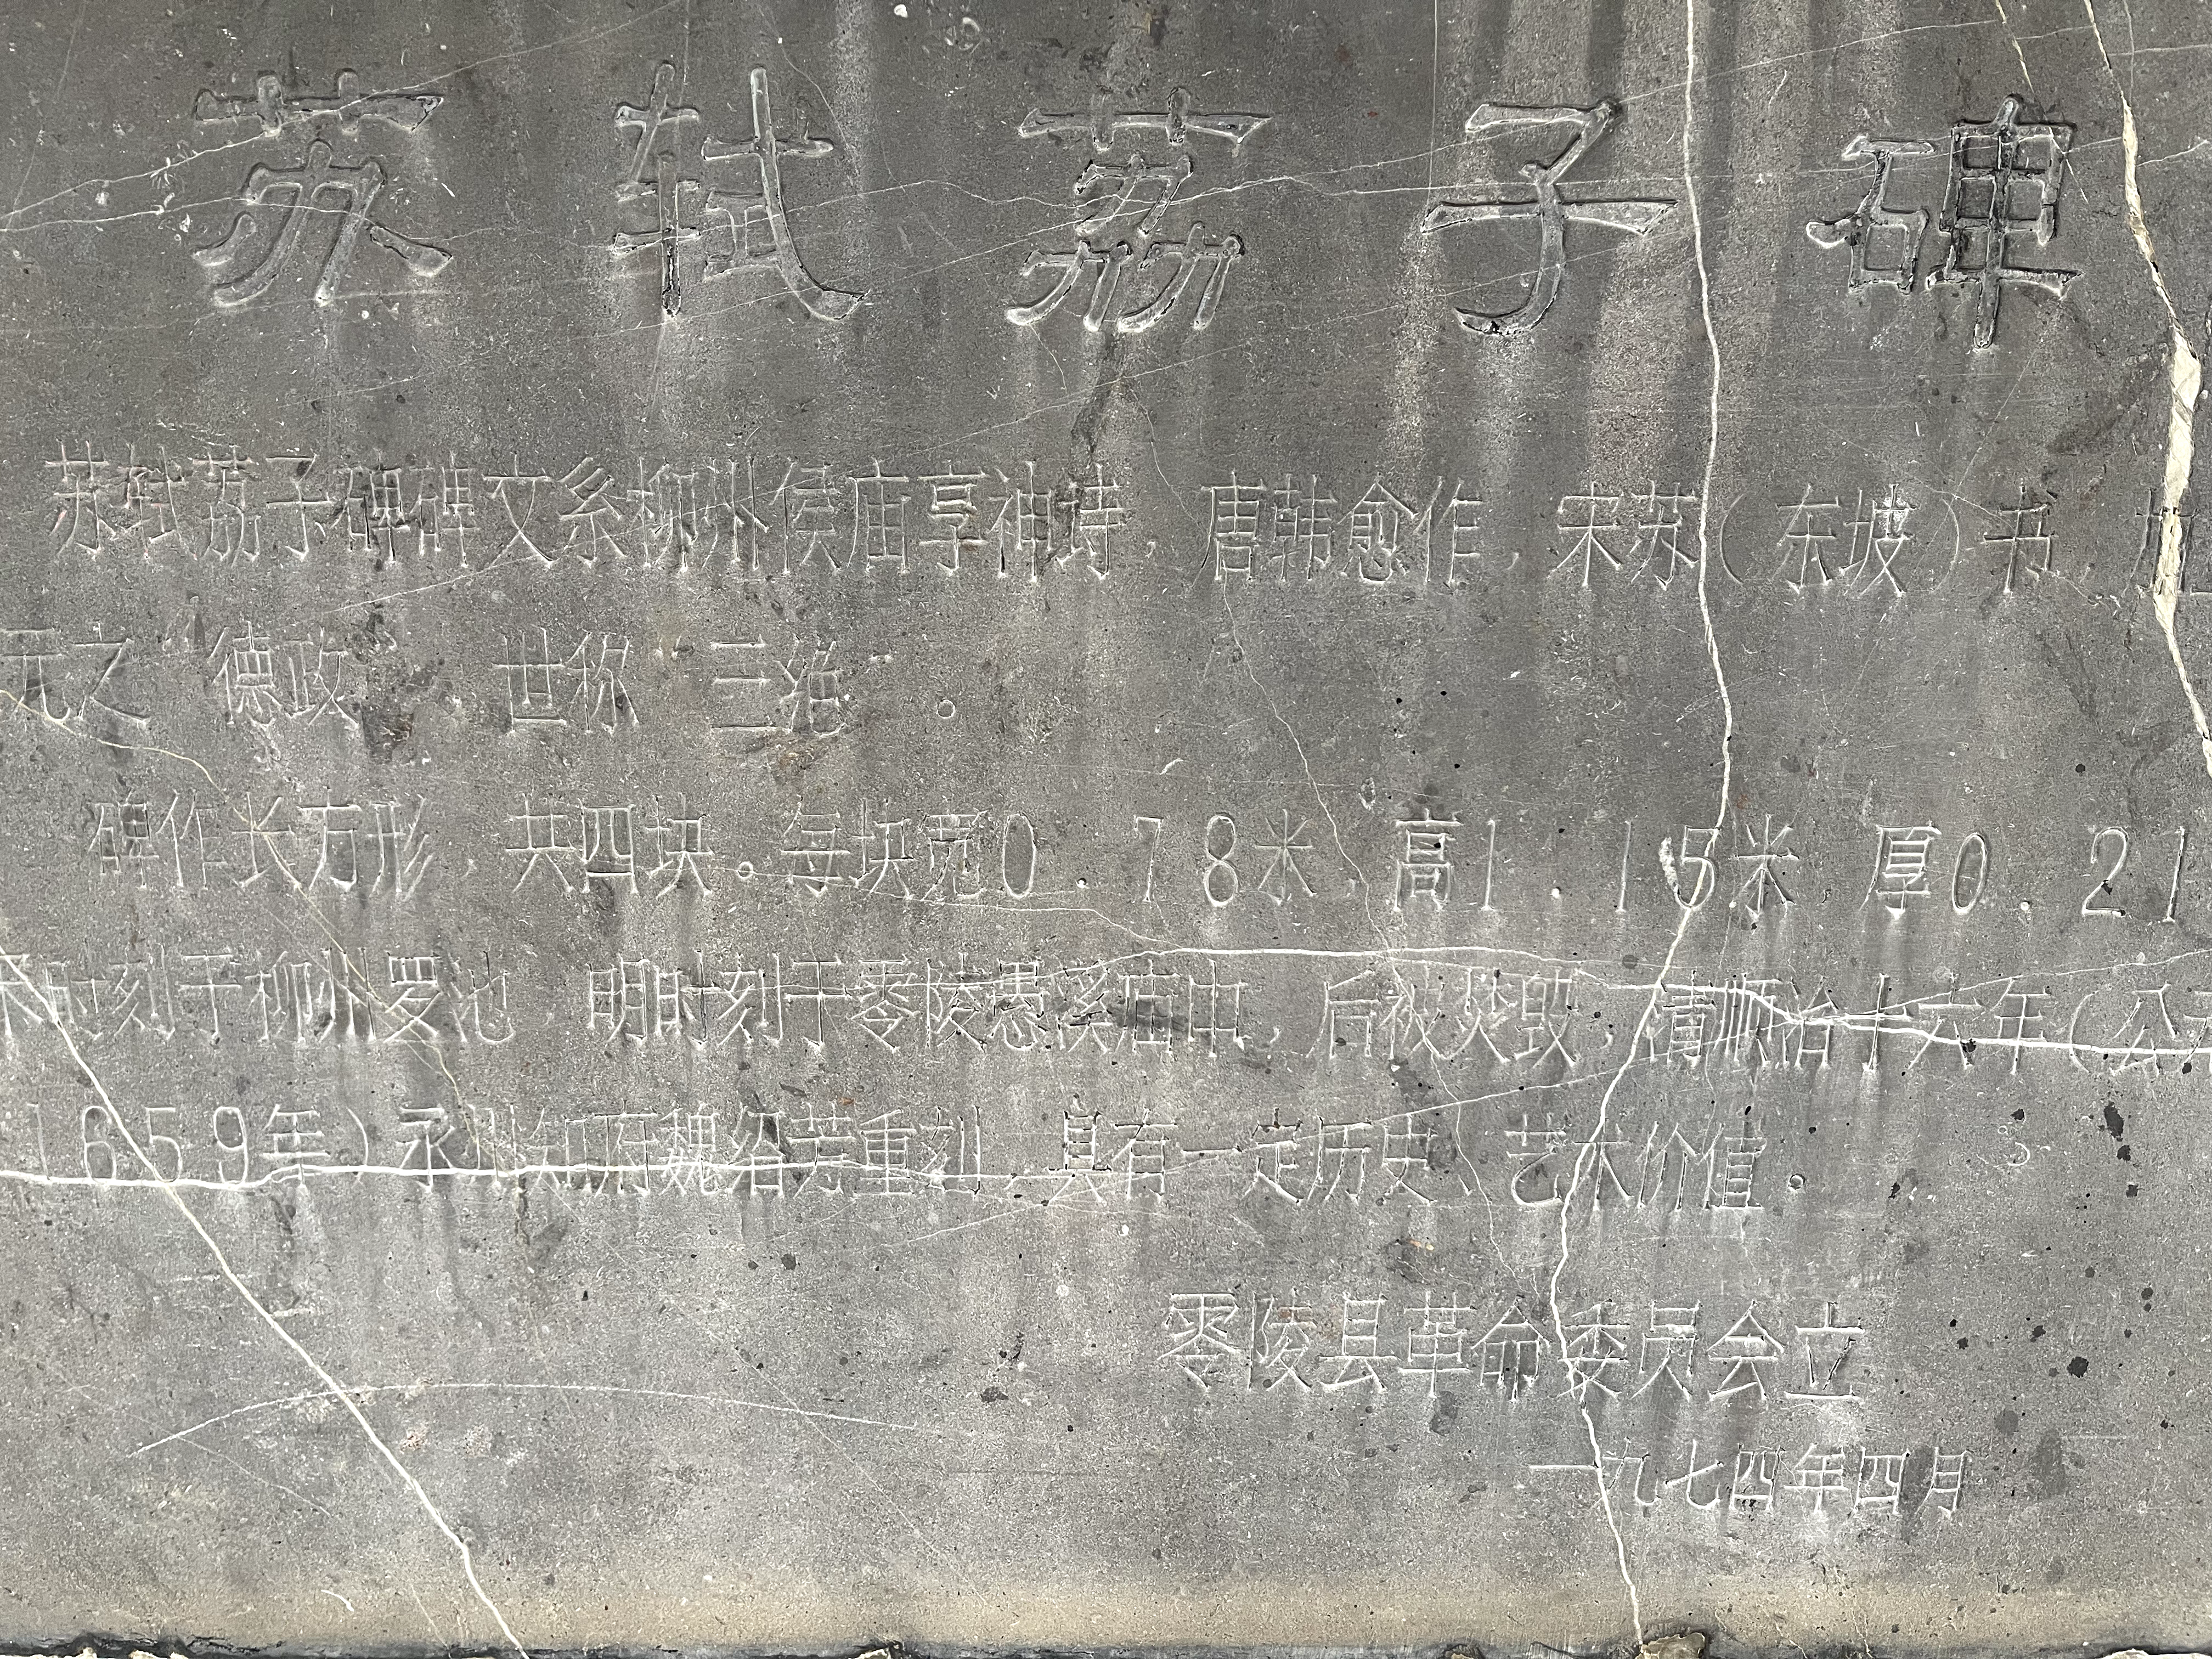 苏轼荔子碑
苏轼荔子碑碑文系柳州侯庙享神诗，唐韩愈作，宋苏（东坡）书，加
元之“德政”，世称“三绝”。
碑作长方形，共四块。每块宽0.78米，高1.15米 厚0.21
时刻于柳州罗池 明时刻于零陵愚溪庙中，后被焚毁，清顺治十六年（公
1659年）永州知府魏绍芳重刻，具有一定历史、艺术价值。
零陵县革命委员会立
一九七四年四月